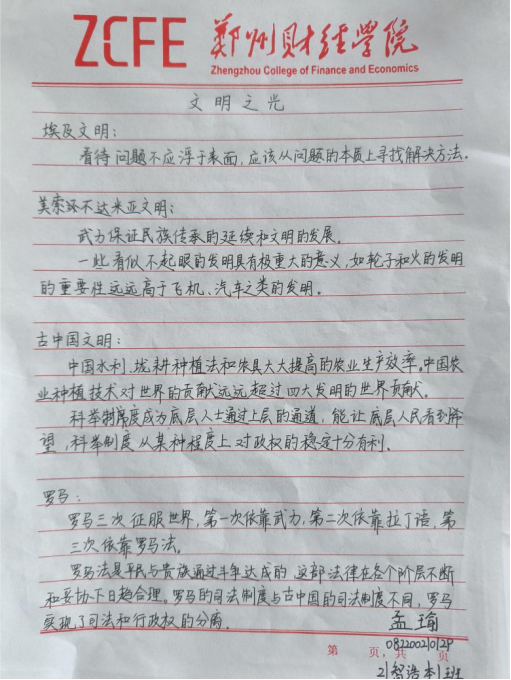 ZCFE 郑州财经学院
Zhengzhou College of Finance and Economics
文明之光
埃及文明:
看待问题不应浮于表面,应该从问题的本质上寻找解决方法.
美索环不达米亚文明:
武力保证民族传承的延续和文明的发展.
一些看似不起眼的发明具有极重大的意义,如轮子和火的发明
的重要性远远高于飞机、汽车之类的发明.
古中国文明:
中国水利、垅耕种植法和农具大大提高的农业生产效率.中国农
业种植技术对世界的贡献远远超过四大发明的世界贡献.
科举制度成为底层人士通过上层的通道,能让底层人民看到希
望,科举制度从某种程度上对政权的稳定十分有利.
罗马:
罗马三次征服世界,第一次依靠武力,第二次依靠拉丁语,第
三次依靠罗马法.
罗马法是平民与贵族通过斗争达成的,这部法律在各个阶层不断
和妥协下日趋合理.罗马的司法制度与古中国的司法制度不同,罗马
实现了司法和行政权的分离.
孟瑜
第 页,共 页
21智浩本1班